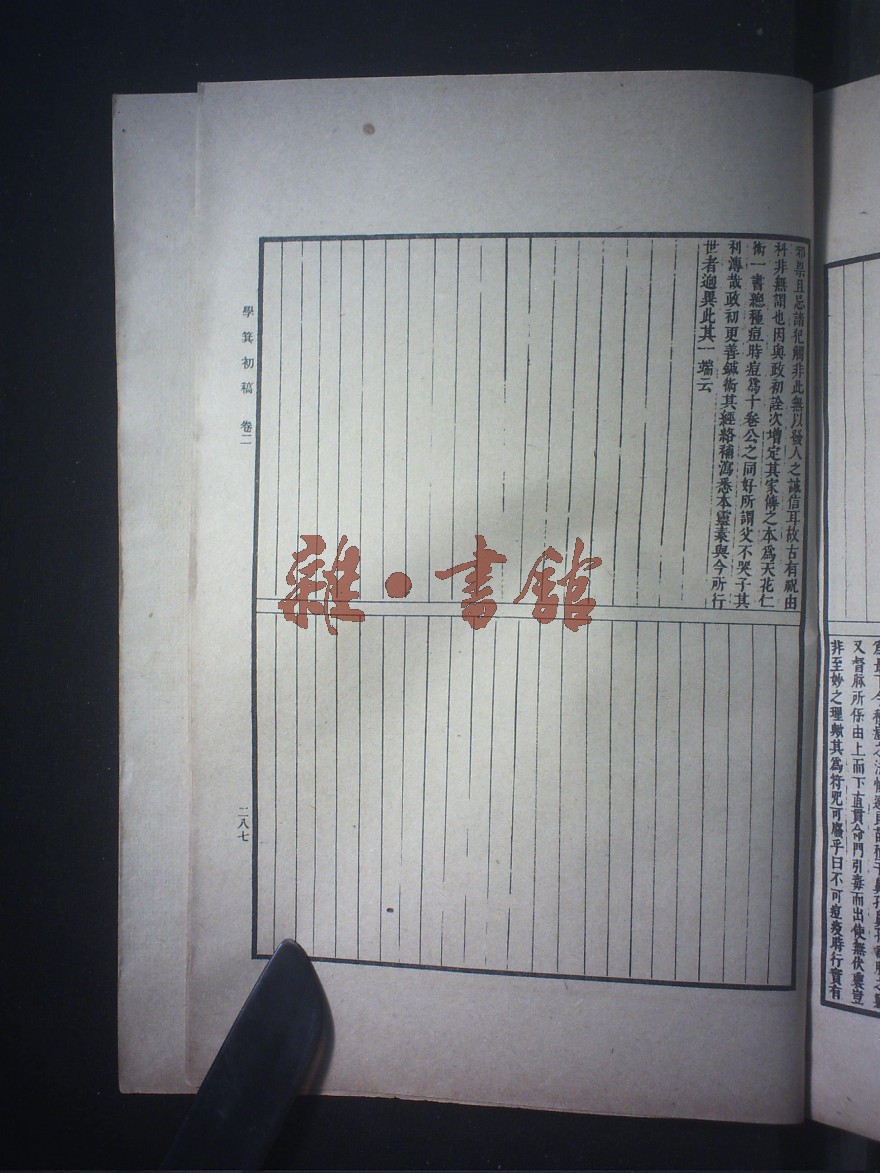 非至妙之理歟其爲符咒可廢乎曰不可痘疫時行實有
又督脉所係由上而下直貫命門引毒而出使無伏藏豈
邪祟且忌諸犯觸非此無以發人之誠信耳故古有祝由
科非無謂也因與政初詮次增定其家傳之本爲天花仁
術一書總種痘時痘爲十卷公之同好所謂父不哭子其
利溥哉政初更善鍼術其經絡補瀉悉本靈素與今所行
世者逈異此其一端云
學箕初稿 卷二
二八七
雜·書館